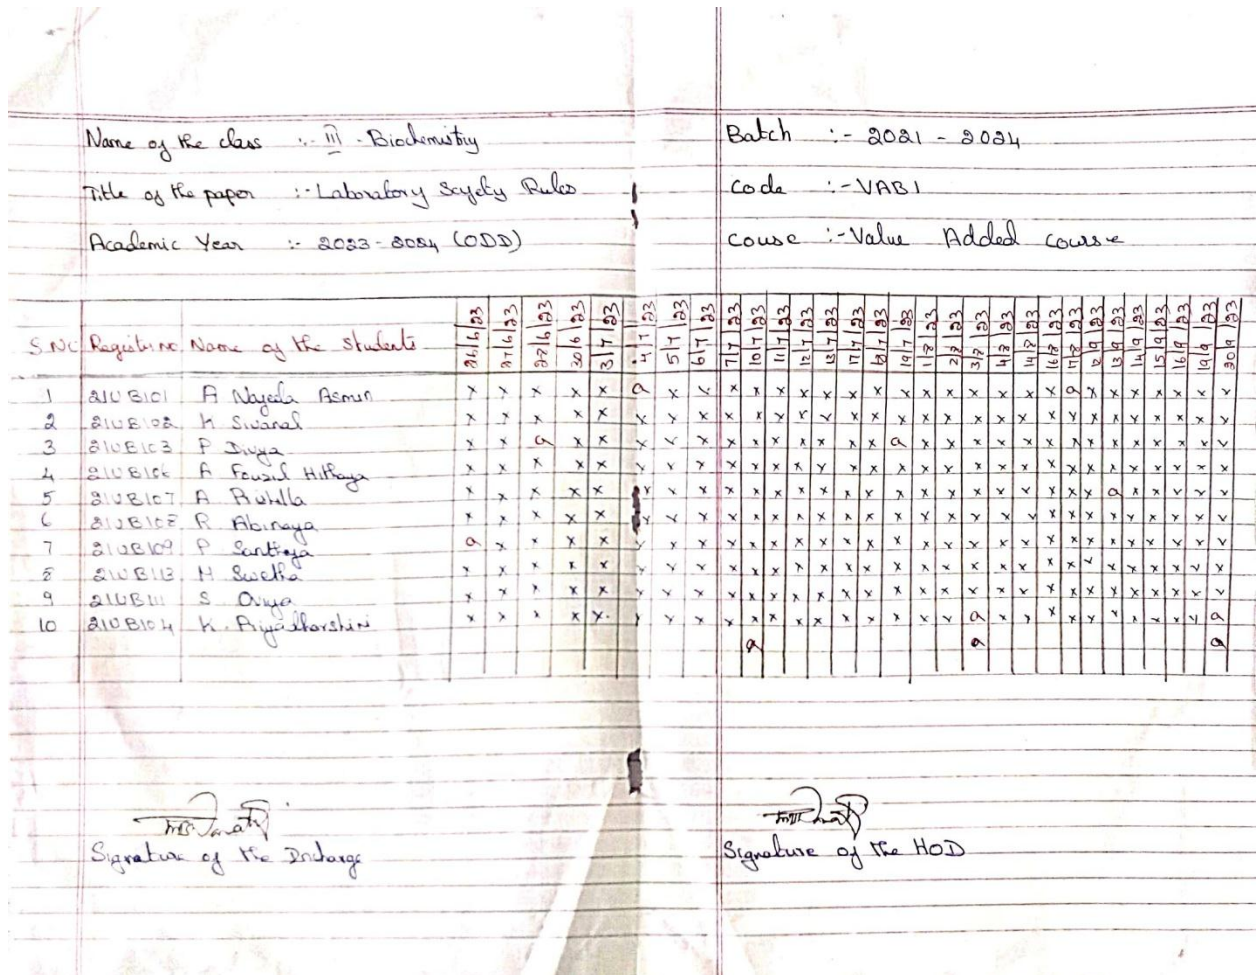 Name of the class :- III - Biochemistry
Batch :- 2021 - 2024
Title of the paper :- Laboratory Safety Rules
Code :- VAB1
Academic Year :- 2023-2024 (ODD)
couse :- Value Added course
S.No Register no Name of the Students 26/6/23 27/6/23 28/6/23 30/6/23 3/7/23 4/7/23 5/7/23 6/7/23 7/7/23 10/7/23 11/7/23 12/7/23 13/7/23 17/7/23 18/7/23 19/7/23 1/8/23 2/8/23 3/8/23 4/8/23 14/8/23 16/8/23 17/8/23 12/9/23 13/9/23 14/9/23 15/9/23 16/9/23 19/9/23 20/9/23
1 21UB101 A Nayeela Asmin x x x x x a x x x x x x x x x x x x x x x x a x x x x x x x
2 21UB102 K Sivanal x x x x x x x x x x x x x x x x x x x x x x x x x x x x x x
3 21UB103 P Divya x x a x x x x x x x x x x x x a x x x x x x x x x x x x x x
4 21UB106 A Fouzul Hithaya x x x x x x x x x x x x x x x x x x x x x x x x x x x x x x
5 21UB107 A x x x x x x x x x x x x x x x x x x x x x x x x a x x x x x
6 21UB108 R Abinaya x x x x x x x x x x x x x x x x x x x x x x x x x x x x x x
7 21UB109 P Santhiya a x x x x x x x x x x x x x x x x x x x x x x x x x x x x x
8 21UB113 M Swetha x x x x x x x x x x x x x x x x x x x x x x x x x x x x x x
9 21UB111 S Oviya x x x x x x x x x x x x x x x x x x x x x x x x x x x x x x
10 21UB104 K. Priyadharshini x x x x x x x x x x x x x x x x x x a x x x x x x x x x x a
a a a
Signature of the Incharge
Signature of the HOD